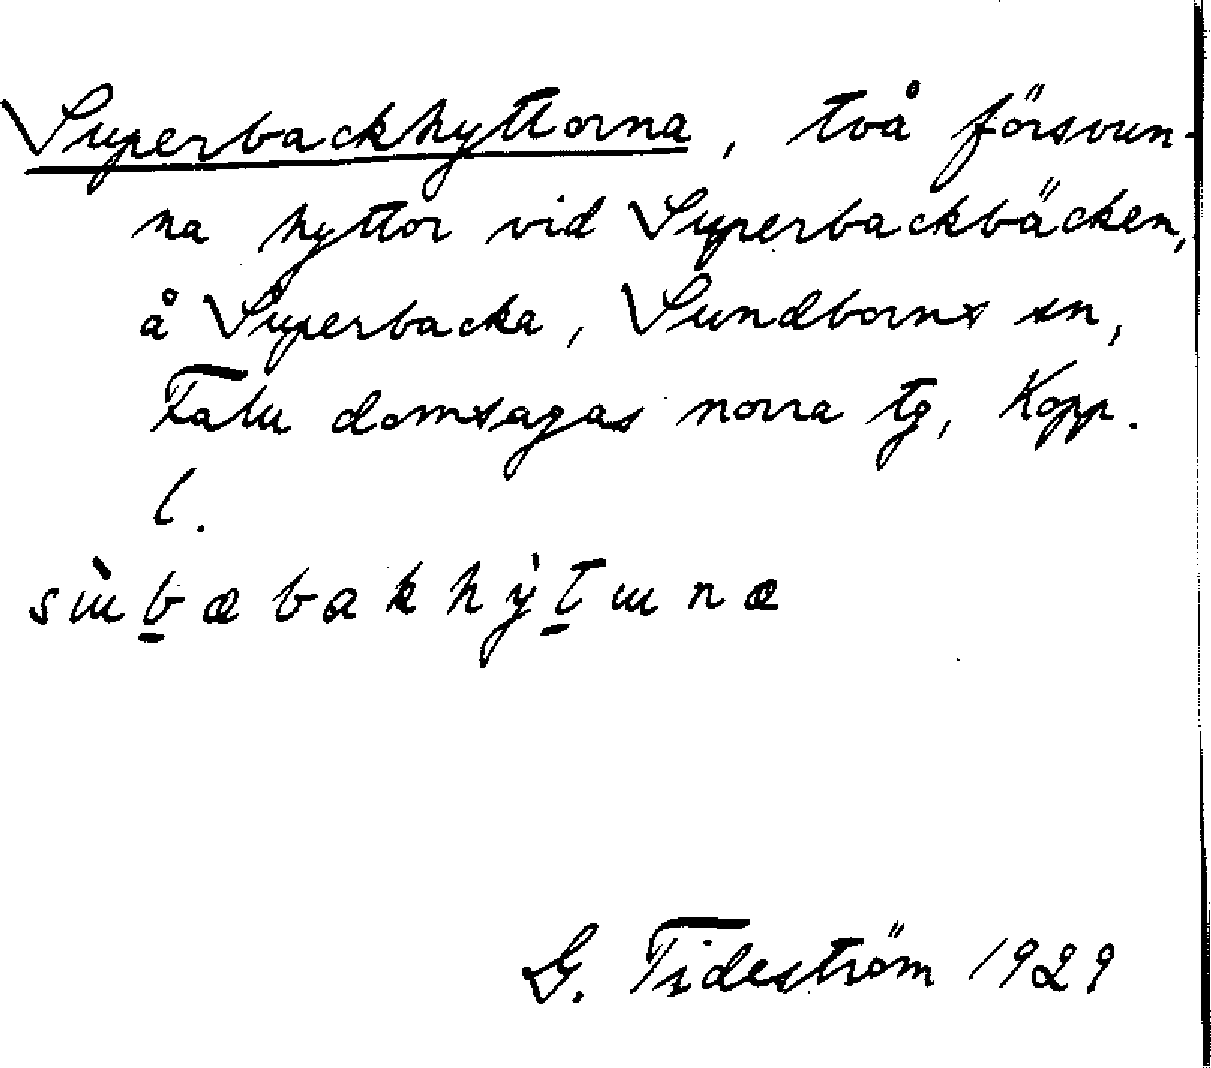 Superbackhyttorna, två försvun-
na hyttor vid Superbackbäcken,
å Superbacka, Sundborns sn,
Falu domsagas norra tg, Kopp.
l.
sɯ̀b̲æbakhỳt̲ɯnæ
G. Tideström 1929